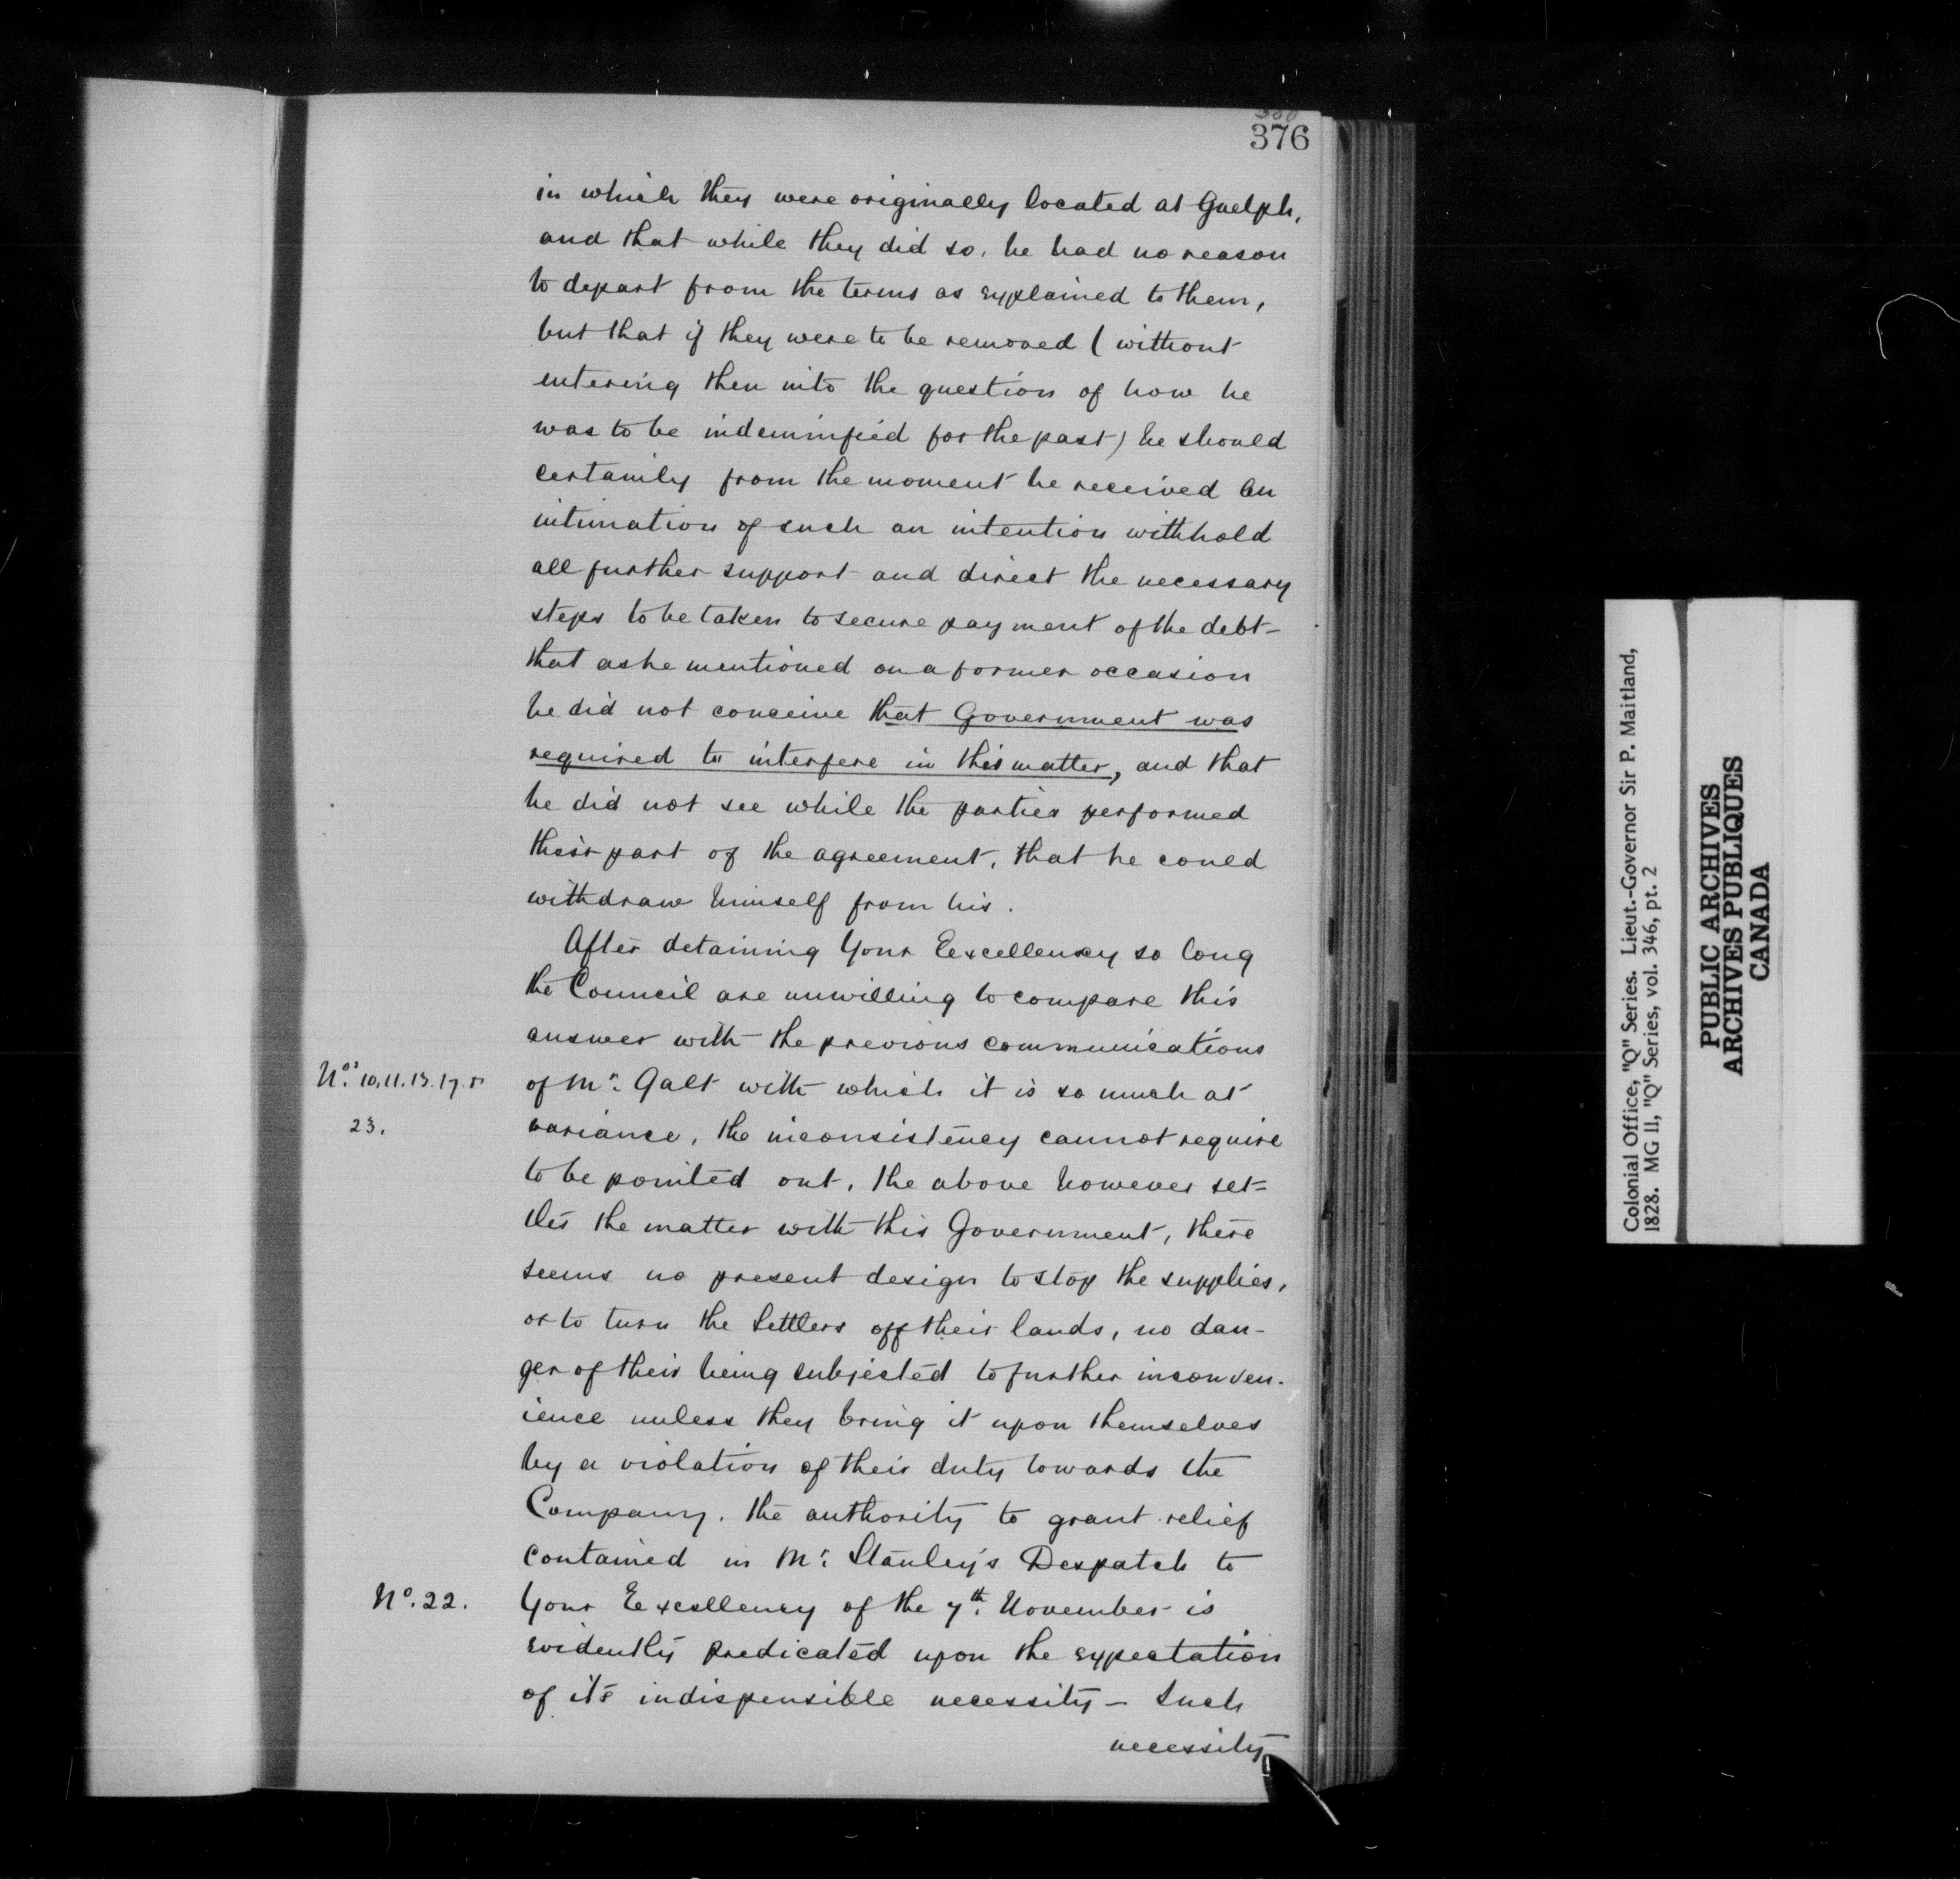 376
in which they were originally located at Guelph,
and that while they did so, he had no reason
to depart from the terms as explained to them,
but that if they were to be removed (without
entering then into the question of how he
was to be indemnified for the past) he should
certainly from the moment he received an
intimation of such an intention withhold
all further support and direct the necessary
steps to be taken to secure payment of the debt -
that as he mentioned on a former occasion
he did not conceive that Government was
required to interfere in this matter, and that
he did not see while the parties performed
their part of the agreement, that he could
withdraw himself from his.
After detaining Your Excellency so long
the Council are unwilling to compare this
answer with the previous communications
Nos. 10.11.13.17.&
of Mr. Galt with which it is so much at
23.
variance, the inconsistency cannot require
to be pointed out, the above however set-
tles the matter with this Government, there
seems no present design to stop the supplies,
or to turn the Settlers off their lands, no dan-
ger of their being subjected to further inconven-
ience unless they bring it upon themselves
by a violation of their duty towards the
Company. the authority to grant relief
contained in Mr. Stanley's Despatch to
No. 22.
Your Excellency of the 7th. November is
evidently predicated upon the expectation
of its indispensible necessity - Such
necessity
Colonial Office, "Q" Series. Lieut.-Governor Sir P. Maitland,
1828. MG 11, "Q" Series, vol. 346, pt. 2
PUBLIC ARCHIVES
ARCHIVES PUBLIQUES
CANADA